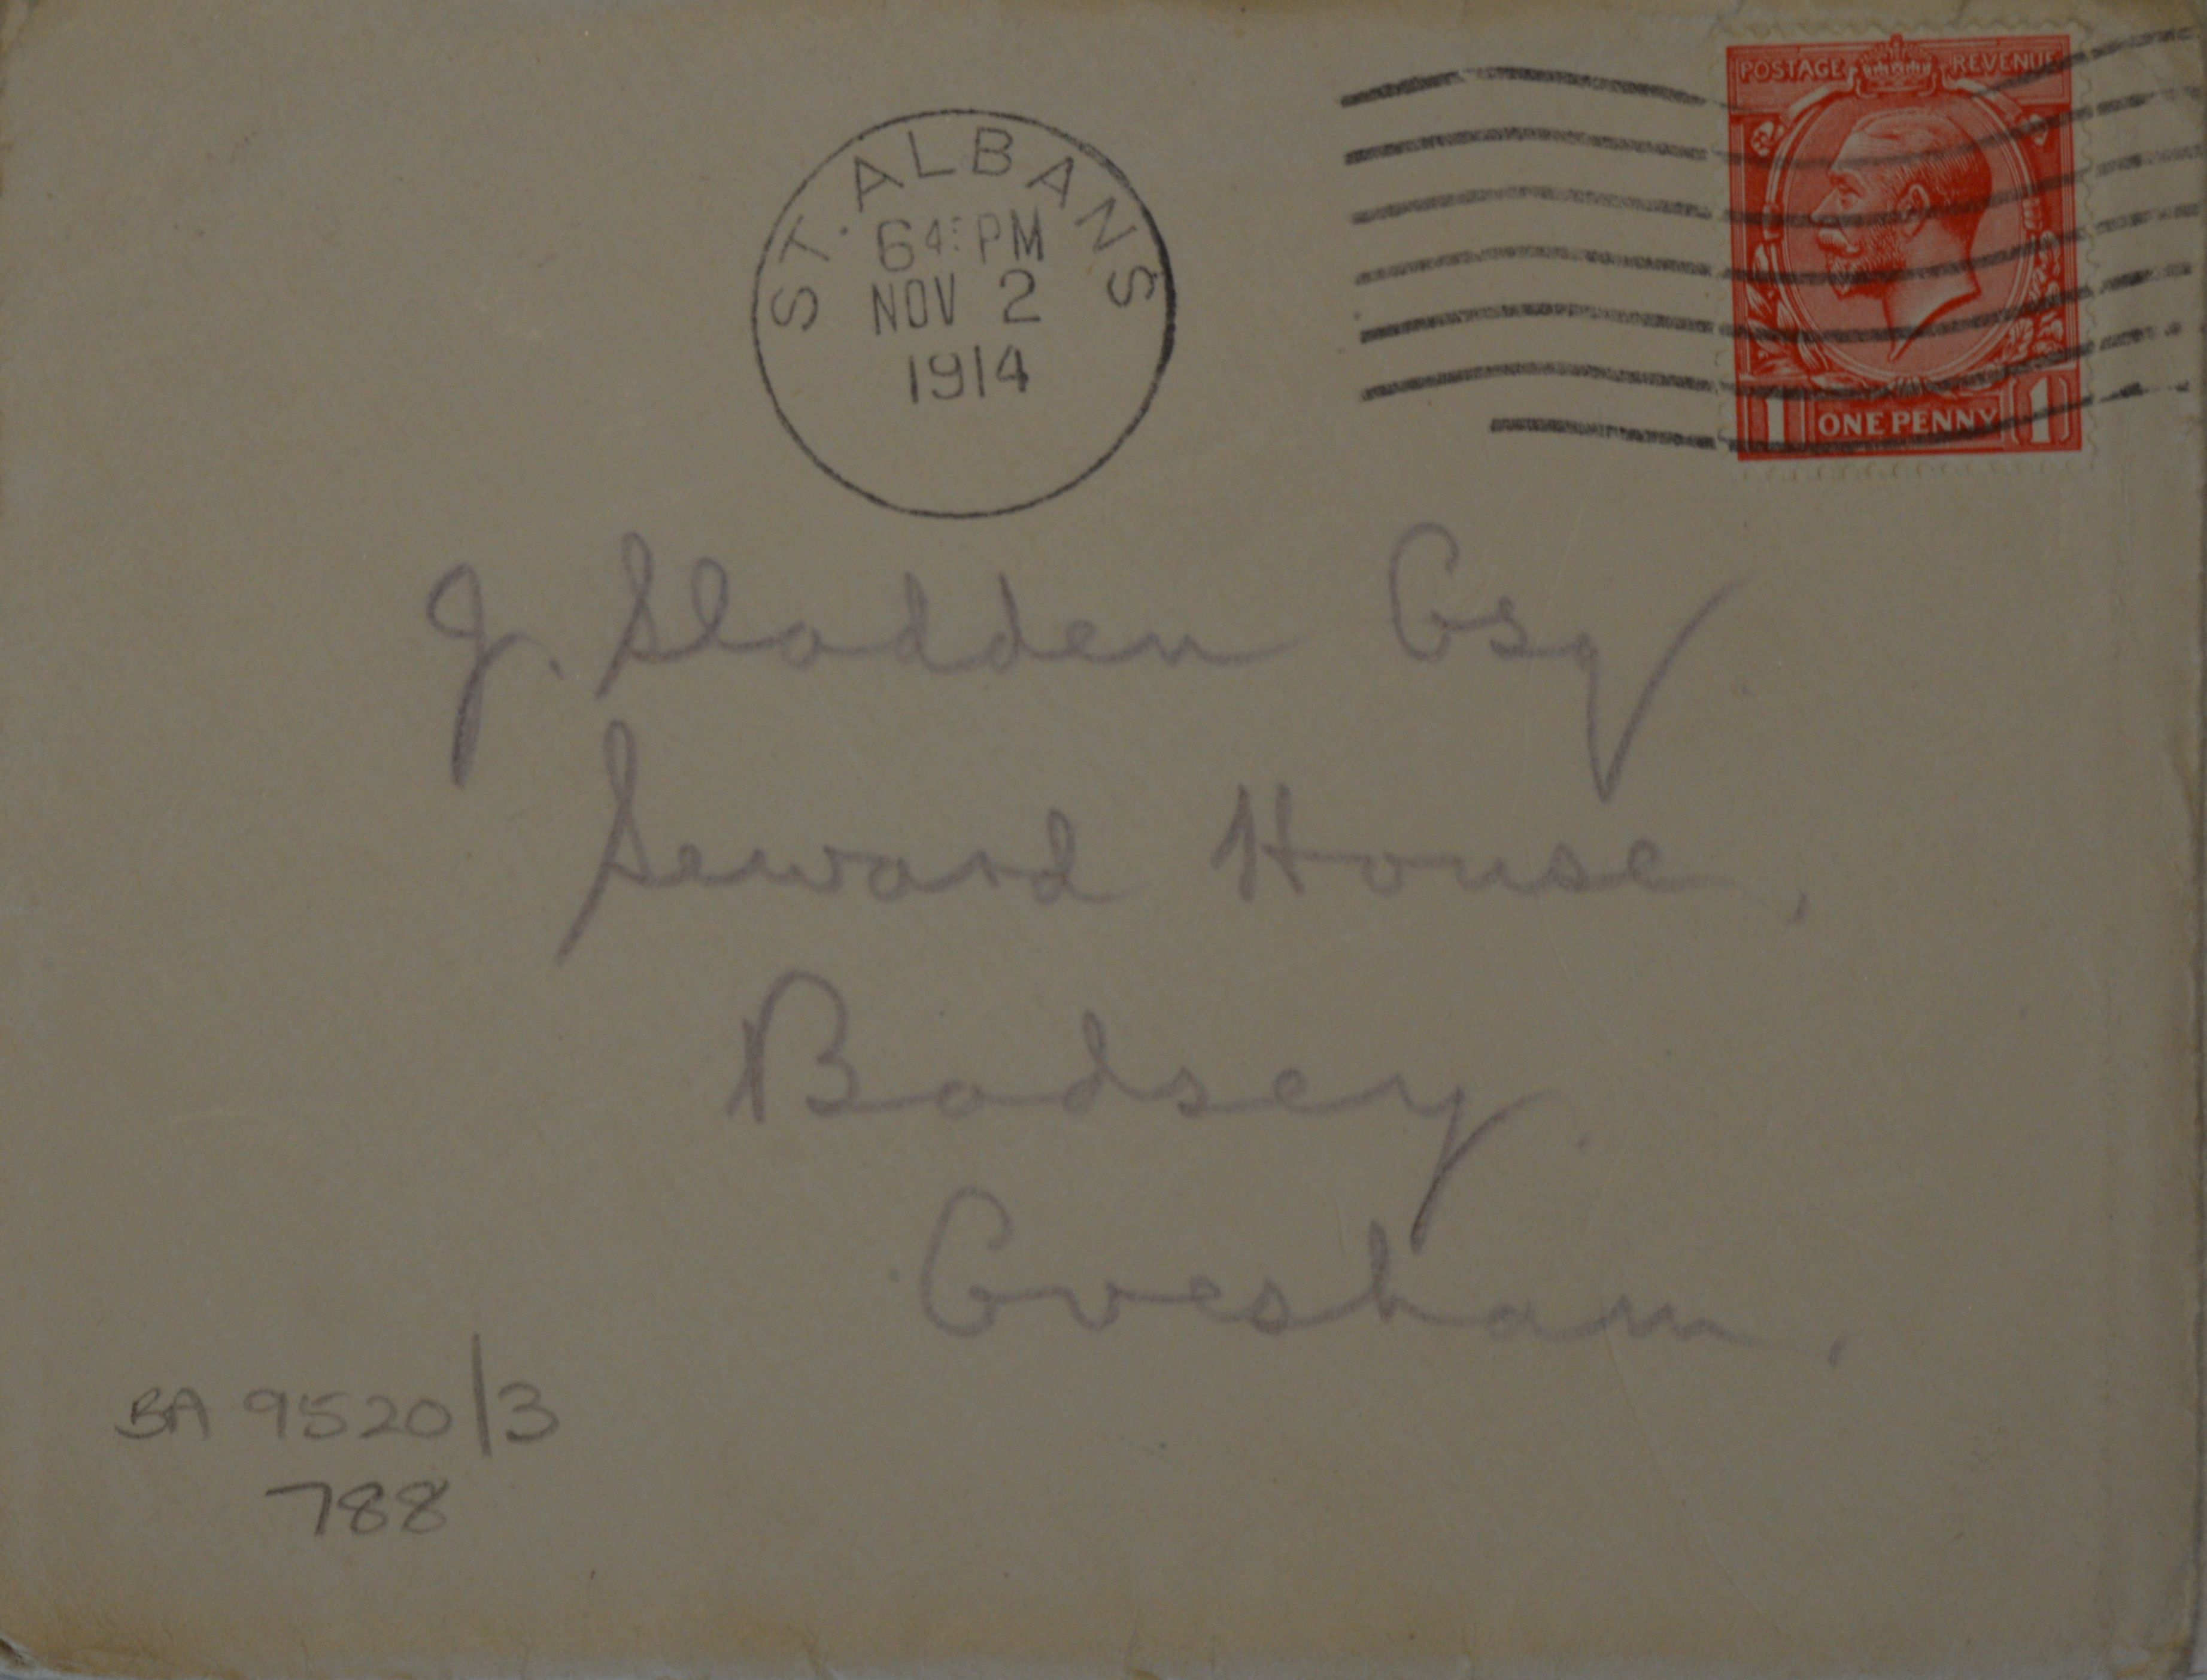 POSTAGE REVENUE
ST. ALBANS
6 45 PM
NOV 2
1914
1 ONE PENNY 1
J. Sladden Esq.
Seward House,
Badsey.
Evesham.
BA 9520/3
788